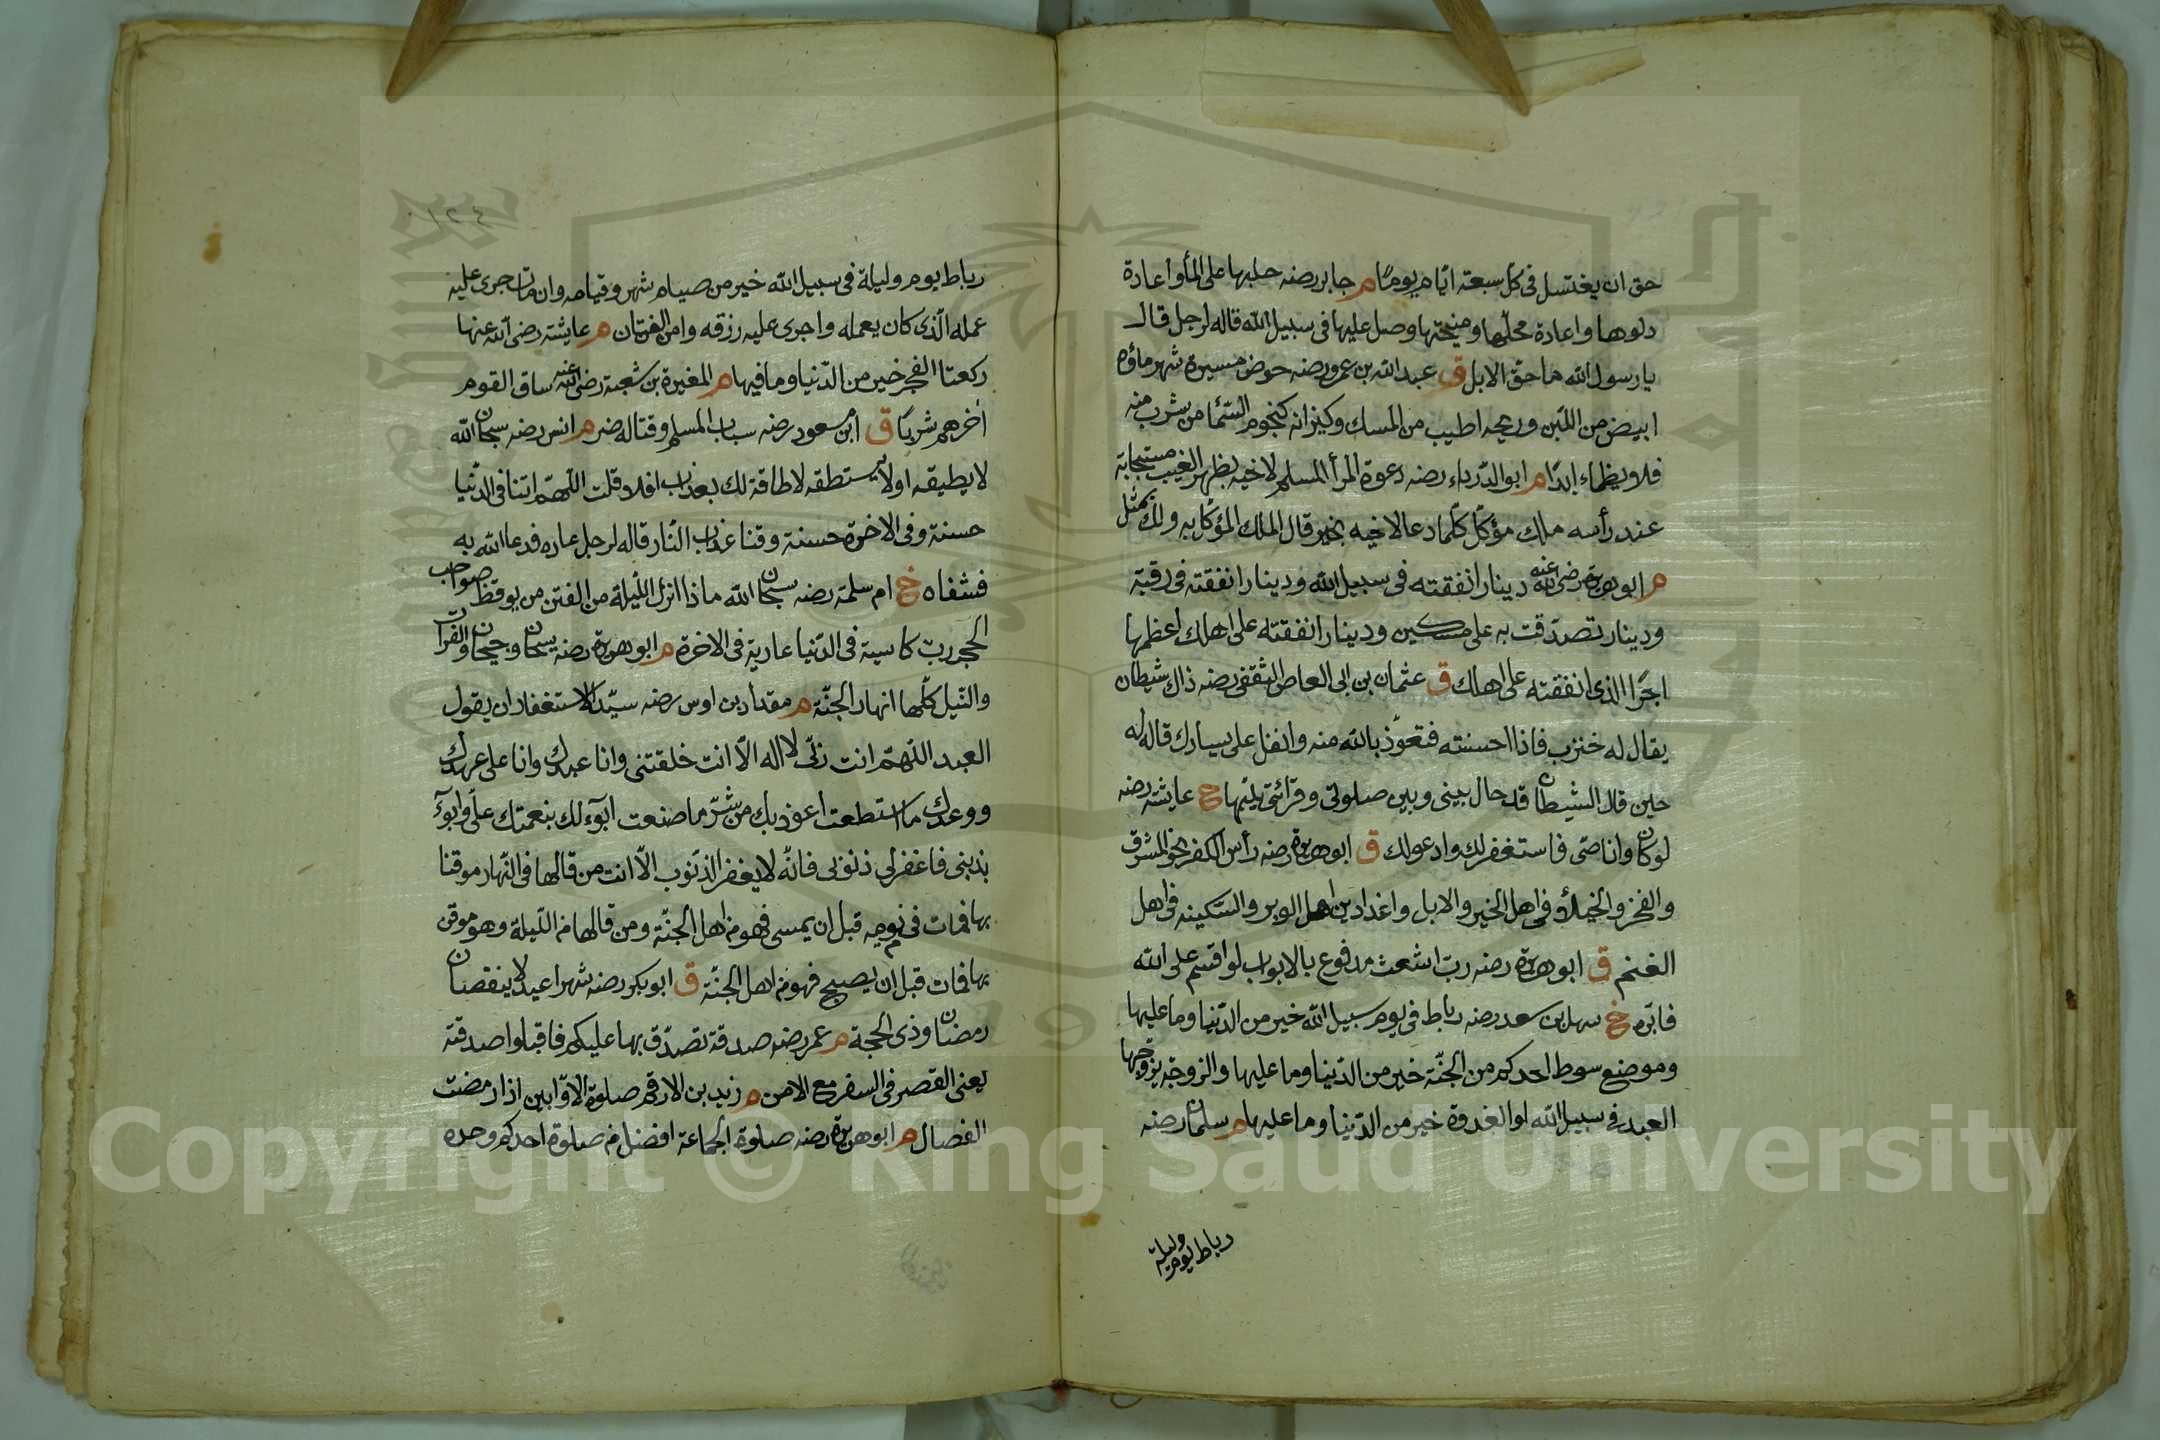 حق ان يغتسل فى كل سبعة ايّام يومًا م جابر رضه حلبها على المأ واعادة
دلوها واعادة محلّها ومنيحتها وحمل عليها فى سبيل الله قاله لرجل قال
يارسول الله ما حقّ الابل ق عبد الله بن عمرو رضه حوض مسيرة شهر ماؤه
ابيض من اللبن وريحه اطيب من المسك وكيزانه كنجوم السّما من شرب منه
فلا يظماء ابدًا م ابو الدّرداء رضه دعوة المرأ المسلم لاخيه بظهر الغيب مستجابة
عند رأسه ملك مؤكّل كلّما دعا لاخيه بخير قال الملك المؤكل به ولك بمثل
م ابو هريرة رضى الله عنه دينار انفقته فى سبيل الله ودينار انفقته فى رقبة
ودينار تصدّقت به على مسكين ودينار انفقته على اهلك اعظمها
اجرًا الذى انفقته على اهلك ق عثمان بن ابى العاص الثقفى رضه ذاك شيطان
يقال له خنزب فاذا احسنته فتعوّذ بالله منه واتفل على يسارك قاله له
حين قال الشيطان قد حال بينى وبين صلوتى وقرائتى يلبّسها خ عايشه رضه
لو كان وانا حىّ فاستغفر لك وادعو لك ق ابو هريرة رضه رأس الكفر نحو المشرق
والفخر والخيلاؤ فى اهل الخير والابل واغدادين اهل الوبر والسّكينه فى اهل
الغنم ق ابو هريرة رضه ربّ اشعث مدفوع بالابواب لو اقسم على الله
فابّره خ سهل بن سعد رضه رباط فى يوم سبيل الله خير من الدّنيا وما عليها
وموضع سوط احدكم من الجنّة خير من الدّنيا وما عليها والزوجة يزوّجها
العبد فى سبيل الله او الغدوة خير من الدّنيا وما عليها م سلمان رضه
رباط يوم وليلة
١٢٤
رباط يوم وليلة فى سبيل الله خير من صيام شهر وقيامه وان مات جرى عليه
عمله الّذى كان يعمله واجرى عليه رزقه وامن الفتان م عايشة رضى الله عنها
ركعتا الفجر خير من الدّنيا وما فيها م المغيرة بن شعبة رضى الله عنه ساقى القوم
اخرهم شربًا ق ابن مسعود رضه سباب المسلم وقتاله م انس رضه سبحان الله
لا يطيقه او لا يستطقه لا طاقة لك بعذاب افلا قلت اللّهمّ اتنا فى الدّنيا
حسنة وفى الاخرة حسنة وقنا عذاب النّار قاله لرجل عاده فدعا الله به
فشفاه خ ام سلمة رضه سبحان الله ماذا انزل اللّيلة من الفتن من يوقظ صواحب
الحجر ربّ كاسية فى الدّنيا عارية فى الاخرة م ابو هريرة رضه سيحان وجيحان والفرات
والنّيل كلّها انهار الجنّة م مقداد بن اوس رضه سيّد الاستغفار ان يقول
العبد اللّهمّ انت ربّى لا اله الّا انت خلقتنى وانا عبدك وانا على عهدك
ووعدك ما استطعت اعوذ بك من شرّ ما صنعت ابوٓء لك بنعمتك علّى وابوٓء
بذنبى فاغفر لى ذنوبى فانّه لا يغفر الذّنوب الّا انت من قالها فى النّهار موقنا
بها فمات فى يومه قبل ان يمسى فهو من اهل الجنّة ومن قالها من اللّيلة وهو موقن
بها فمات قبل ان يصبح فهو من اهل الجنّة ق ابو بكر رضه شهرا عيد لا ينقصان
رمضان وذى الحجة م عمر رضه صدقة تصدّق بها عليكم فاقبلوا صدقته
يعنى القصر فى السفر مع الامن م زيد بن الارقم صلوة الاوّابين اذا رمضت
الفصال م ابو هريرة رضه صلوة الجماعة افضل من صلوة احدكم وحده
Copyright © King Saud University